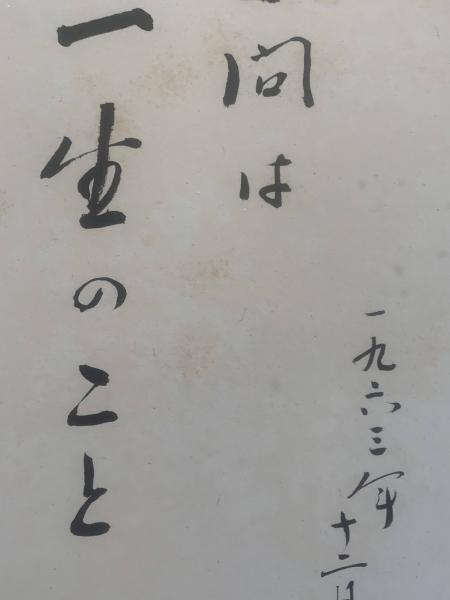 一九六三年
十二月
問は
一生のこと